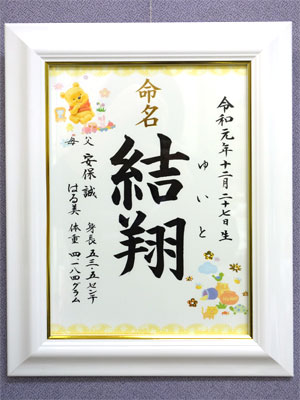 令和元年十二月二十七日生
ゆいと
命名
結翔
父 安保 誠
母 はる美
身長 五三・五センチ
体重 四一八四グラム